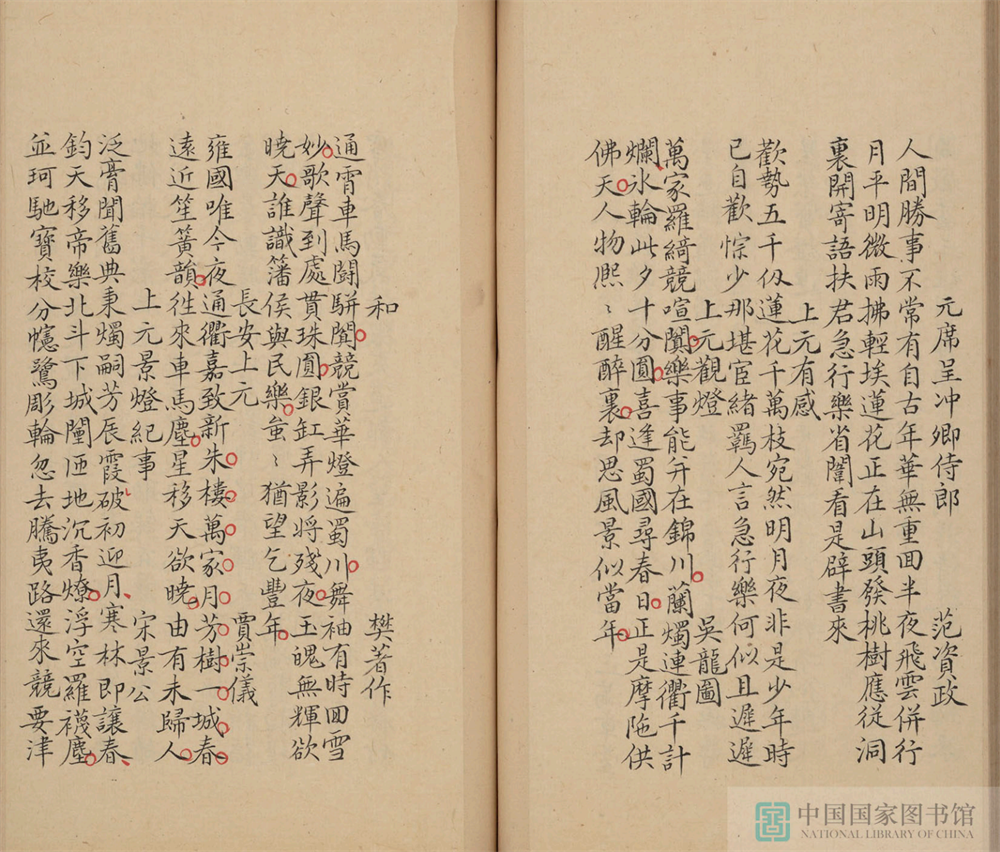 元席呈冲卿侍郎 范資政
人間勝事不常有自古年華無重回半夜飛雲併行
月平明微雨拂輕埃蓮花正在山頭發桃樹應從洞
裏開寄語扶君急行樂省闈看是辟書來
上元有感
歡勢五千仭蓮花千萬枝宛然明月夜非是少年時
已自歡悰少那堪宦緒羇人言急行樂何似且遲遲
上元觀燈 吳龍圖
萬家羅綺競喧闐樂事能并在錦川蘭燭連衢千計
爛冰輪此夕十分圓喜逢蜀國尋春日正是摩陁供
佛天人物熙〻醒醉裏却思風景似當年
和 樊著作
通宵車馬鬪駢闐競賞華燈遍蜀川舞袖有時回雪
妙歌聲到處貫珠圓銀缸弄影將殘夜玉魄無輝欲
曉天誰識籓侯與民樂蚩〻猶望乞豐年
長安上元 賈崇儀
雍國唯今夜通衢嘉致新朱樓萬家月芳樹一城春
遠近笙簧韻徃來車馬塵星移天欲曉由有未歸人
上元景燈紀事 宋景公
泛膏聞舊典秉燭嗣芳辰霞破初迎月寒林即讓春
鈞天移帝樂北斗下城闉匝地沉香燎浮空羅襪塵
並珂馳寶校分幰鷺彫輪忽去騰夷路還來競要津
中国国家图书馆
NATIONAL LIBRARY OF CHINA